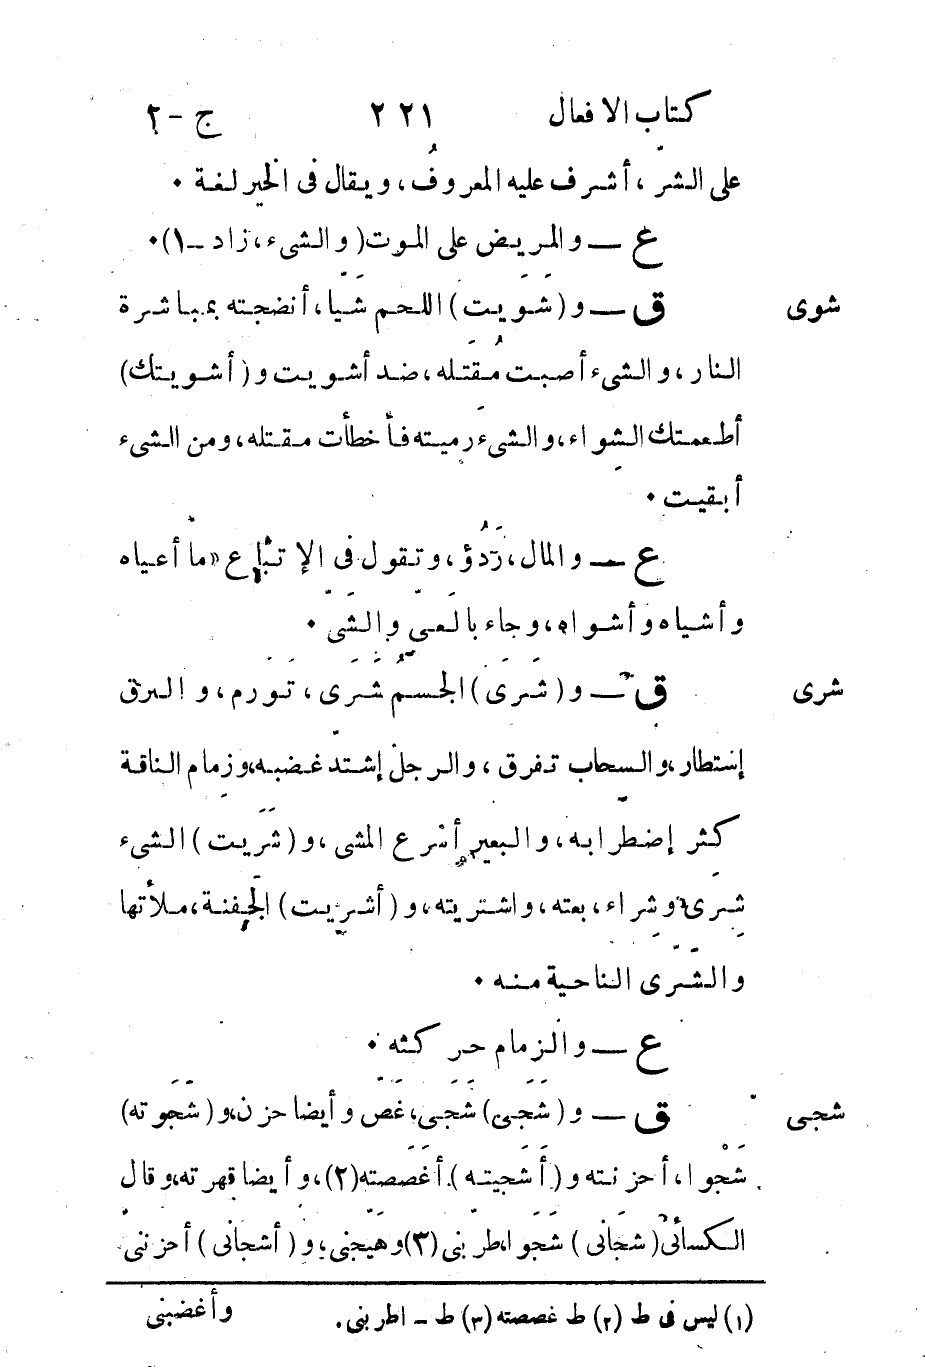 كتاب الافعال ٢٢١ ج - ٢
على الشر، أشرف عليه المعروفُ، ويقال فى الخير لغة ٠
ع — والمريض على الموت (والشىء، زاد - ١) ٠
شوى ق — و (شَوَيت) اللحم شَيّا، أنضجته بمباشرة
النار، والشىء أصبت مَقتله، ضد أشويت و (أشويتك)
أطعمتك الشواء، والشىء رميته فأخطأت مَقتله، ومن الشىء
أبقيت ٠
ع — والمال، رَدُؤ، وتقول فى الإتباع «ما أعياه
وأشياه وأشواه، وجاء بالعىّ والشىّ ٠
شرى ق — و (شَرَى) الجسم شَرَى، تورم، والبرق
إستطار، والسحاب تفرق، والرجل إشتد غضبه، وزمام الناقة
كثر إضطرابه، والبعير أسرع المشى، و (شَرَيت) الشىء
شِرىً وشراء، بعته، واشتريته، و (أشريت) الجفنة، ملأتها
والشَّرَى الناحية منه ٠
ع — والزمام حركته ٠
شجى ق — و (شَجِىَ) شَجَى، غص وأيضا حزن، و (شَجَوته)
شَجْوا، أحزنته و (أشجيته) أغصَصته (٢)، وأيضا قهرته، وقال
الكسائى (شَجانى) شَجوا، طربنى (٣) وهيجنى، و (أشجانى) أحزننى
وأغضبنى
(١) ليس فى ط (٢) ط غصصته (٣) ط - اطربنى.